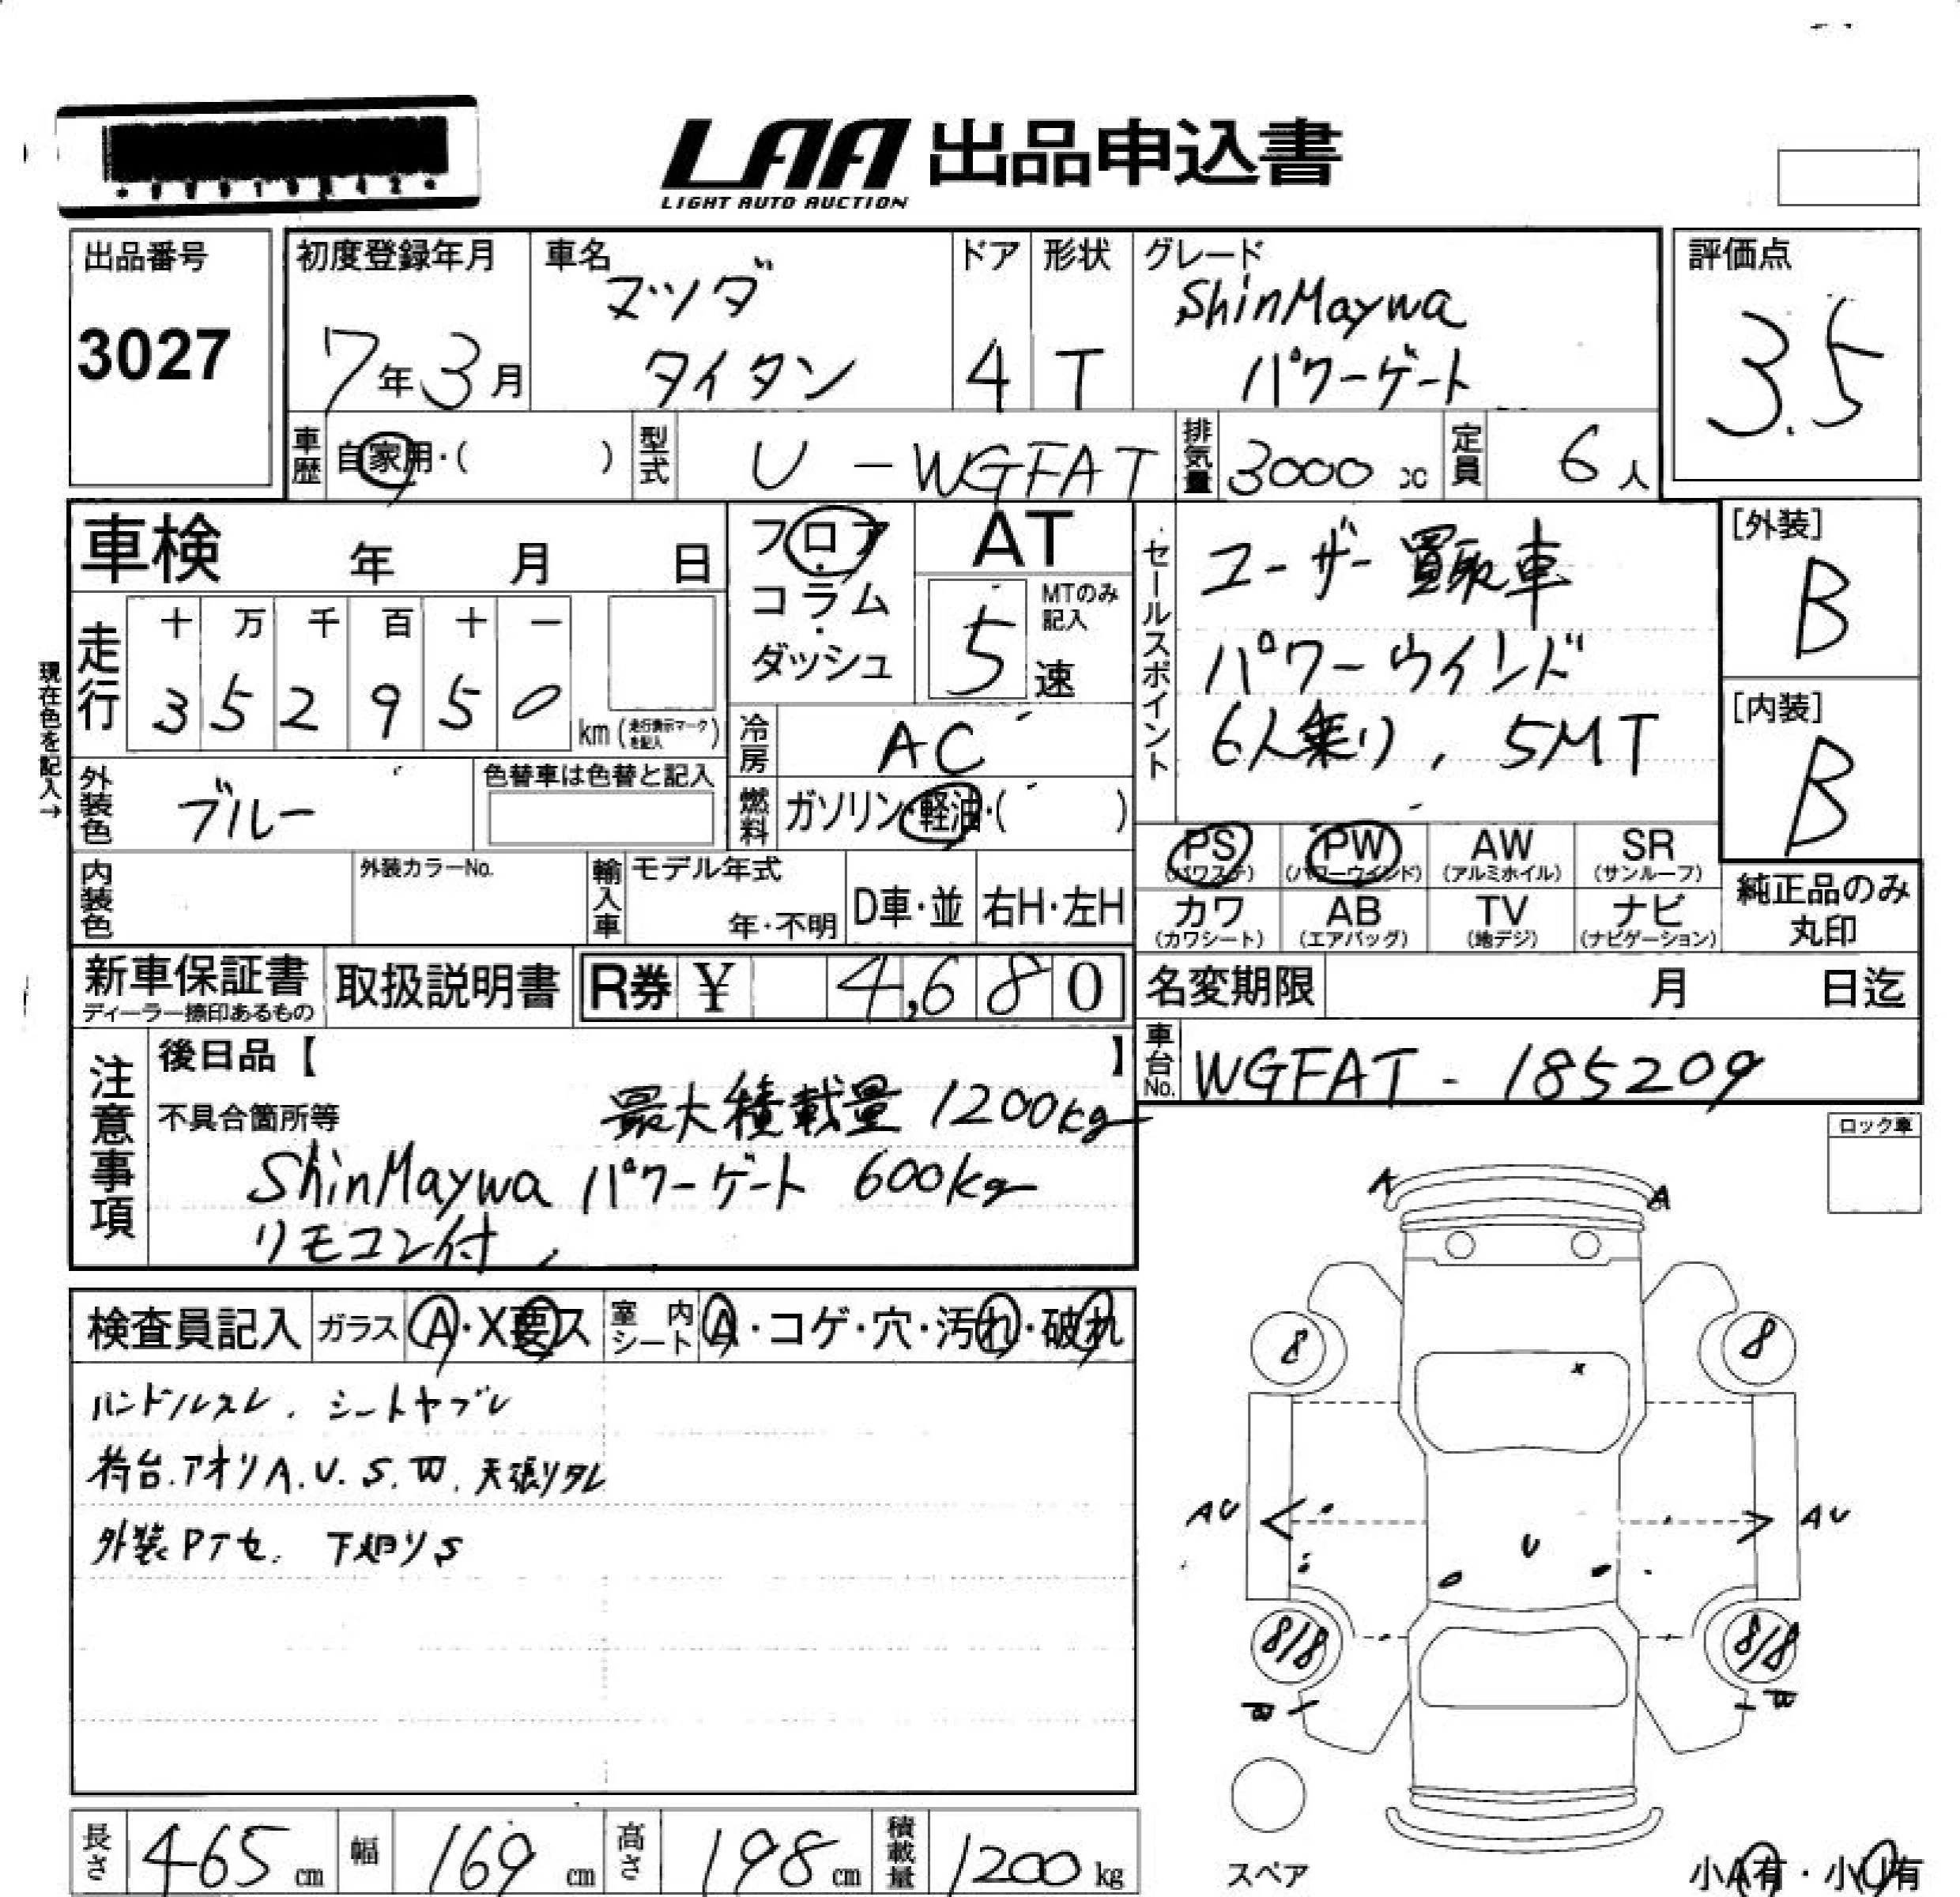 LAA 出品申込書
LIGHT AUTO AUCTION
出品番号
3027
初度登録年月
7年3月
車名
マツダ
タイタン
ドア
4
形状
T
グレード
ShinMaywa
パワーゲート
評価点
3.5
車歴 自家用・( )
型式 U-WGFAT
排気量 3000 cc
定員 6人
車検 年 月 日
フロア・コラム・ダッシュ
AT
MTのみ記入
5速
セールスポイント
ユーザー買取車
パワーウインド
6人乗り, 5MT
[外装]
B
[内装]
B
現在色を記入→
走行 十 万 千 百 十 一
3 5 2 9 5 0 km (走行表示マークを記入)
冷房 AC
外装色 ブルー
色替車は色替と記入
燃料 ガソリン・軽油・( )
内装色
外装カラーNo.
輸入車 モデル年式
年・不明
D車・並
右H・左H
PS (パワステ)
PW (パワーウインド)
AW (アルミホイル)
SR (サンルーフ)
カワ (カワシート)
AB (エアバッグ)
TV (地デジ)
ナビ (ナビゲーション)
純正品のみ
丸印
新車保証書
ディーラー捺印あるもの
取扱説明書
R券 ¥ 4,680
名変期限 月 日迄
車台No. WGFAT-185209
注意事項
後日品【 】
不具合箇所等
最大積載量 1200kg
ShinMaywa パワーゲート 600kg
リモコン付
ロック車
検査員記入
ガラス A・X要ス
室内シート A・コゲ・穴・汚れ・破れ
ハンドルスレ. シートヤブレ
荷台.アオリA.U.S.W. 天張リタレ
外装PTセ. 下廻りS
A
A
8
8
AU
AU
U
8/8
8/8
W
W
スペア
小A有・小U有
長さ 465 cm
幅 169 cm
高さ 198 cm
積載量 1200 kg